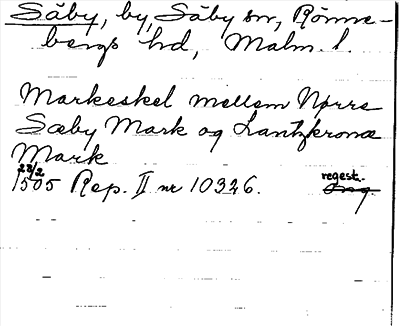 Säby, by, Säby sn, Rönne-
bergs hd, Malm. l.
Markeskel mellem Nørre
Sæby Mark og Lantzkronæ
Mark
22/2
1505 Rep. II nr 10326.
regest.